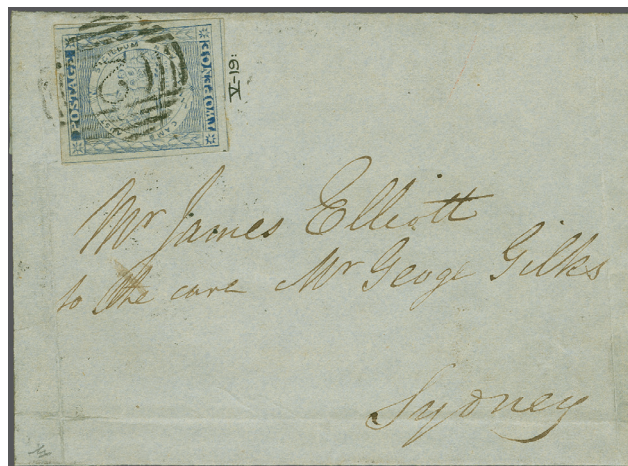 POSTAGE
TWOPENCE
V-19:
Mr James Elliott
to the care Mr Geoge Gilks
Sydney